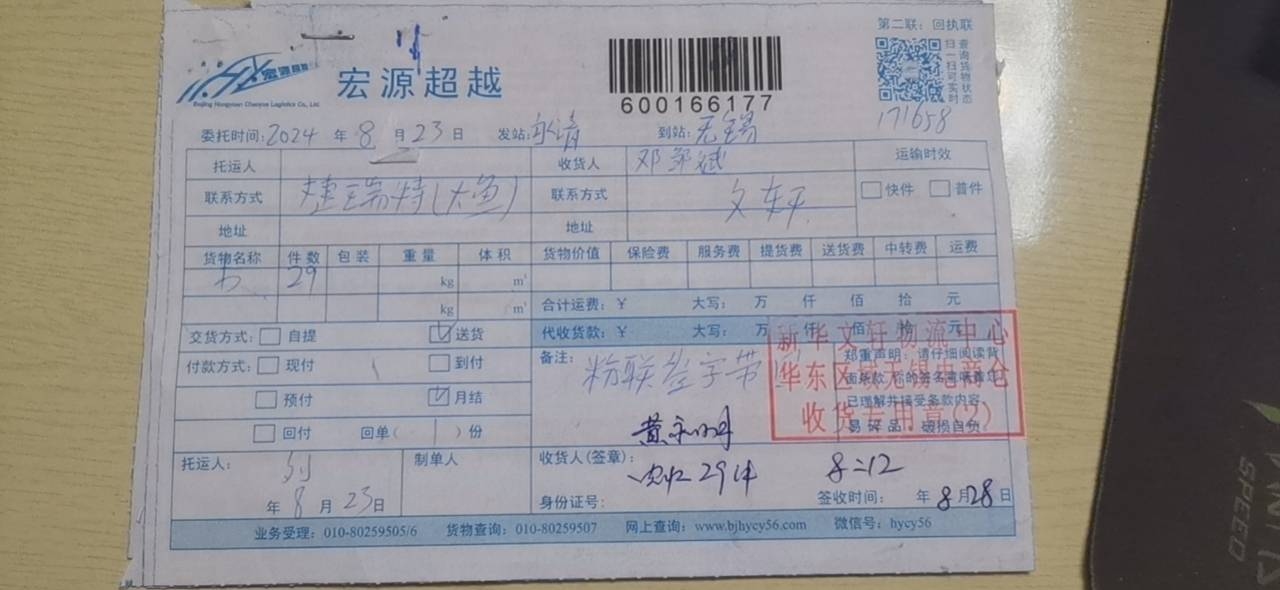 第二联：回执联
宏源超越
宏源超越
Beijing Hongyuan Chaoyue Logistics Co., Ltd.
600166177
查询货物状态
扫一扫可实时
171658
委托时间：2024 年 8 月 23 日 发站：永清 到站：无锡
托运人 收货人 邓 运输时效
联系方式 捷瑞特(大鱼) 联系方式 文轩 快件 普件
地址 地址
货物名称 件数 包装 重量 体积 货物价值 保险费 服务费 提货费 送货费 中转费 运费
书 29 kg m³
kg m³ 合计运费：￥ 大写： 万 仟 佰 拾 元
交货方式： 自提 送货 代收货款：￥ 大写： 万 仟 佰 拾 元
付款方式： 现付 到付 备注： 粉联签字带回
预付 月结
回付 回单( 1 )份
郑重声明：请仔细阅读背
面条款 您的签名意味着您
已理解并接受条款内容。
易碎品 破损自负
新华文轩物流中心
华东区域无锡电商仓
收货专用章(2)
托运人： 刘 制单人 收货人(签章)：
实收29件 8:12
年 8 月 23 日 身份证号： 签收时间： 年 8 月 28 日
业务受理：010-80259505/6 货物查询：010-80259507 网上查询：www.bjhycy56.com 微信号：hycy56
SPEED